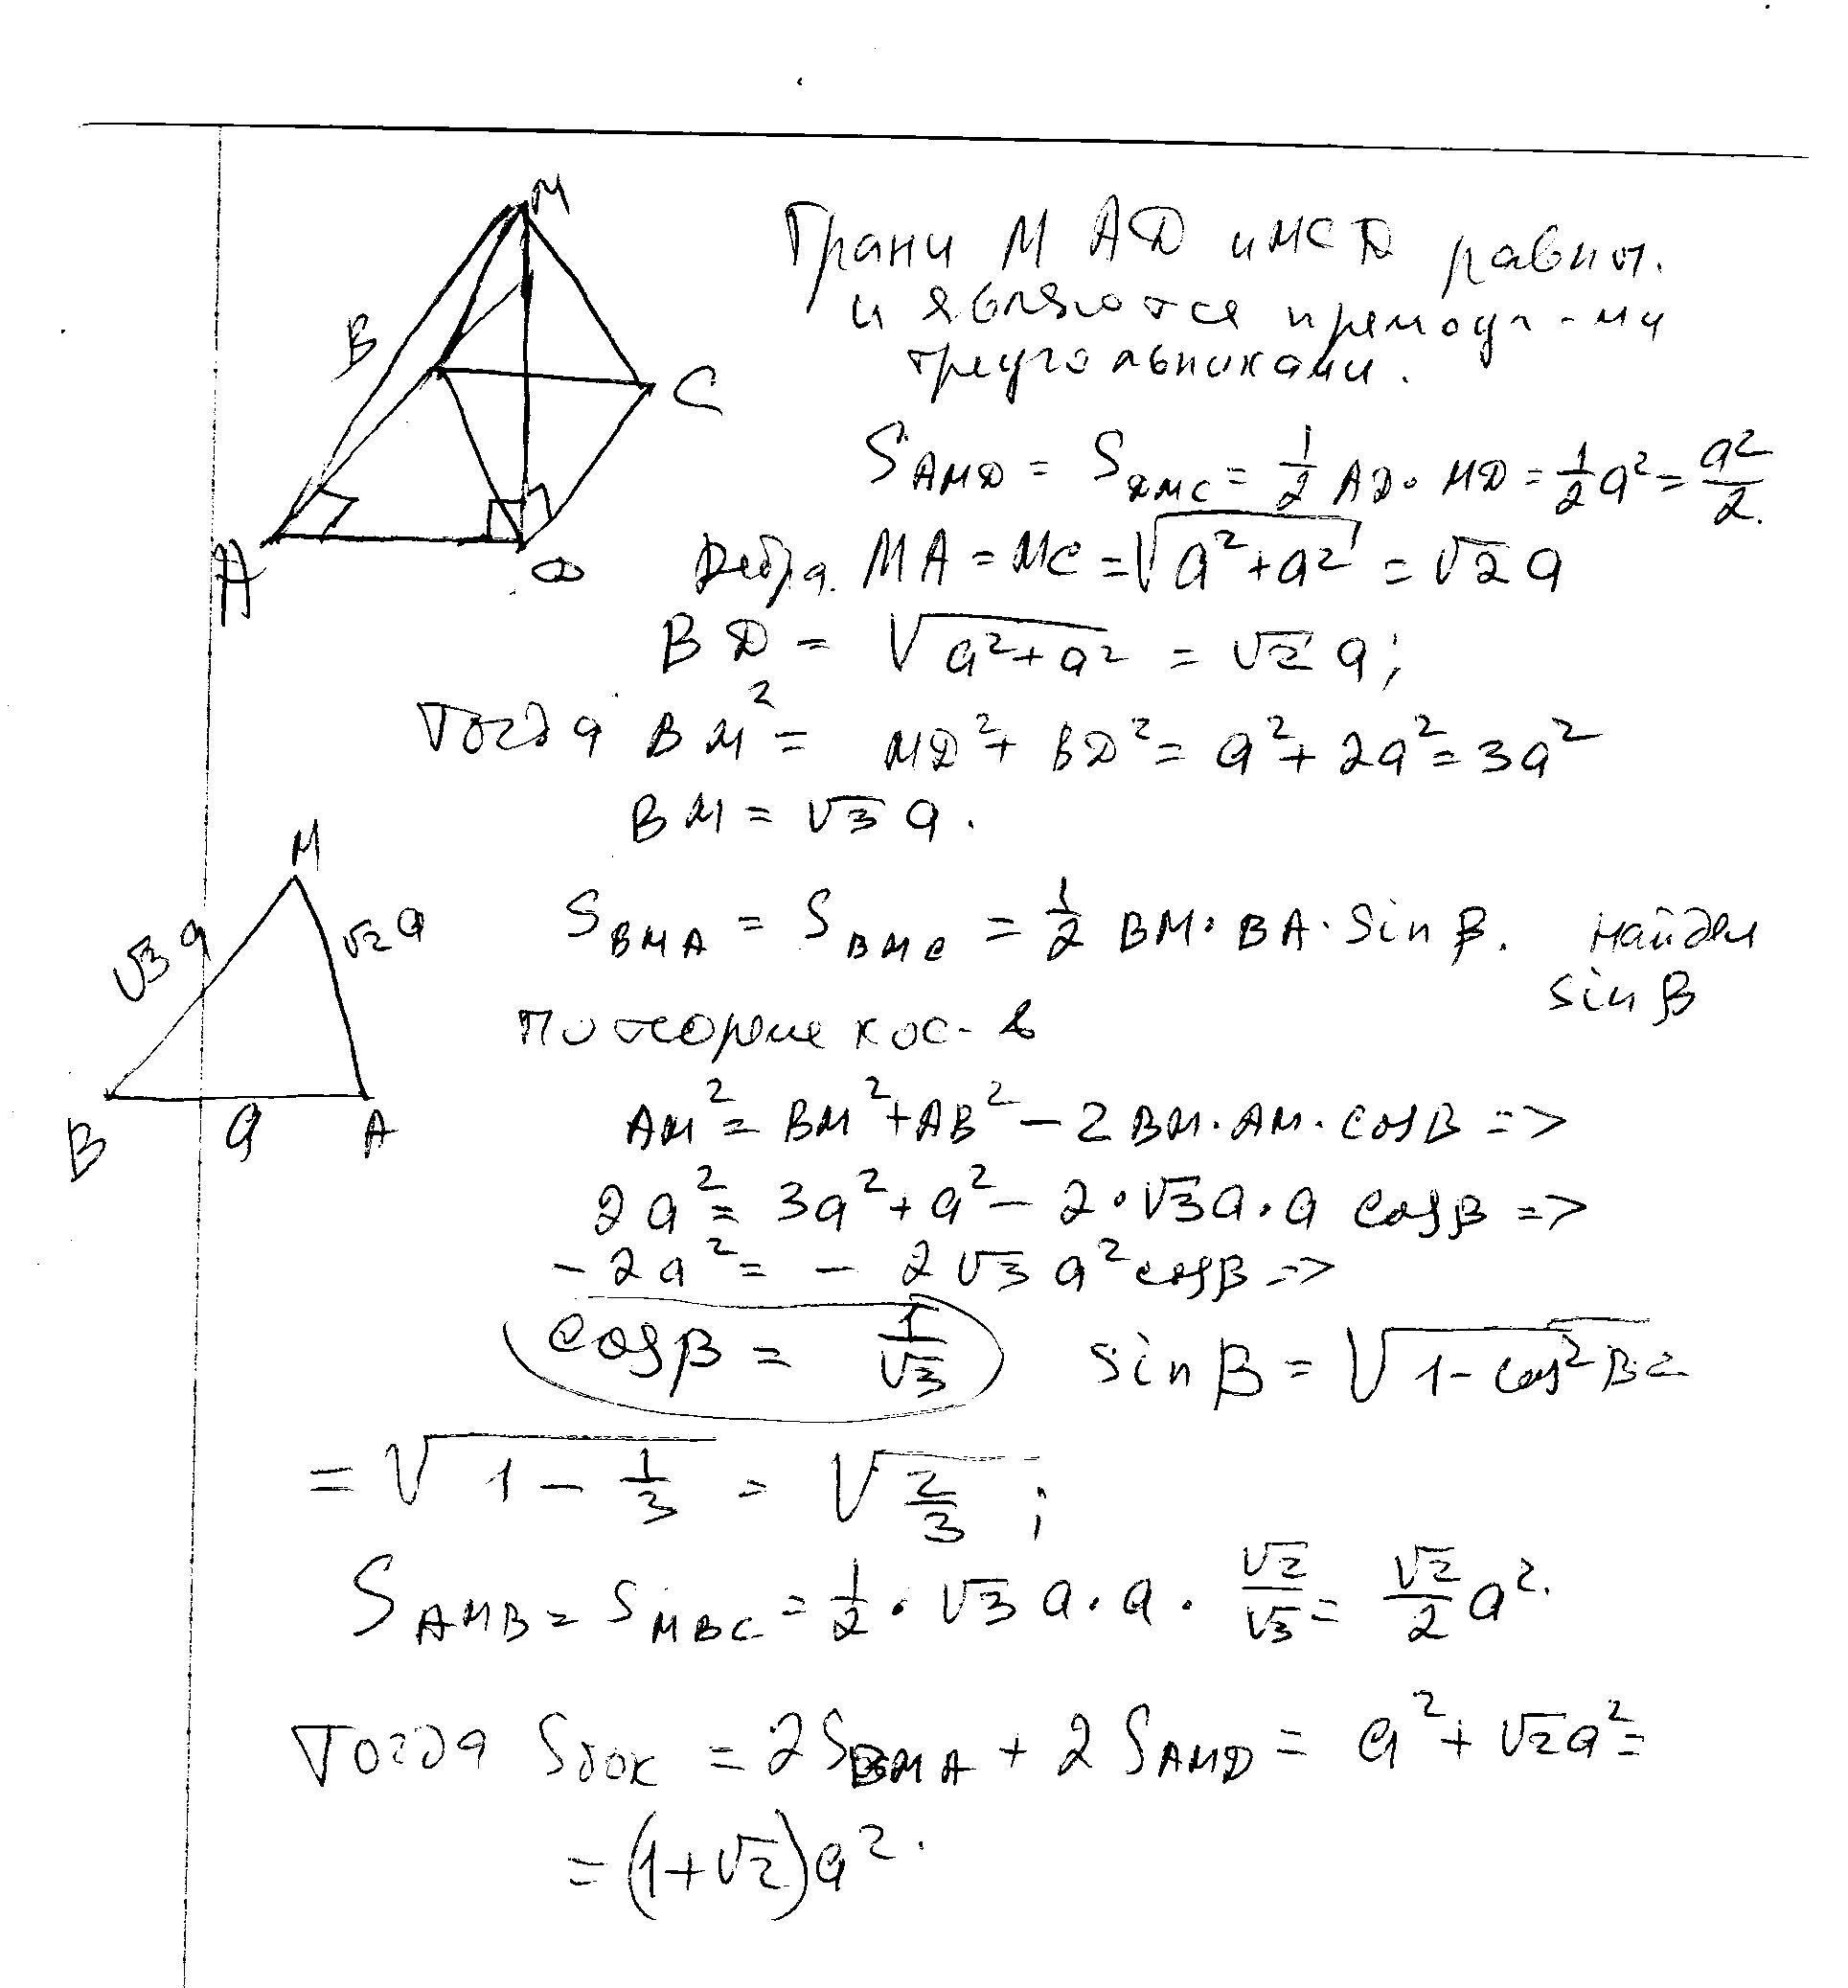 M
B
C
A
D
Грани M AD и MCD равны.
и являются прямоуг-ми
треугольниками.
S AMD = S DMC = 1/2 AD · MD = 1/2 a² = a²/2.
Ребра MA = MC = √(a²+a²) = √2 a
BD = √(a²+a²) = √2 a;
Тогда BM² = MD² + BD² = a² + 2a² = 3a²
BM = √3 a.
M
√3 a
√2 a
B
a
A
S BMA = S BMC = 1/2 BM · BA · sin β. найдем
sin β
По теореме кос-в
AM² = BM² + AB² - 2 BM · AM · cos B =>
2a² = 3a² + a² - 2 · √3 a · a cos β =>
- 2a² = - 2√3 a² cos β =>
cos β = 1/√3 sin β = √(1 - cos² B =
= √(1 - 1/3) = √(2/3);
S AMB = S MBC = 1/2 · √3 a · a · √2/√3 = √2/2 a².
Тогда S бок = 2S BMA + 2 S AMD = a² + √2 a² =
= (1+√2)a².